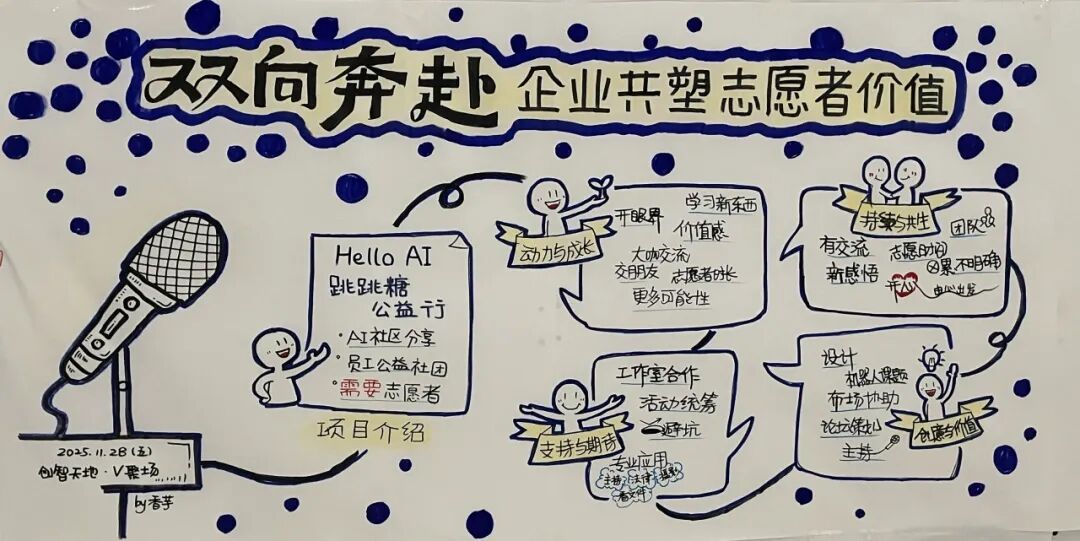 双向奔赴 企业共塑志愿者价值
Hello AI
跳跳糖
公益行
·AI社区分享
·员工公益社团
·需要志愿者
项目介绍
2025.11.28(五)
创智天地·V聚场
by香芋
动力与成长
学习新东西
开眼界
价值感
大咖交流
交朋友
志愿者时长
更多可能性
支持与期待
工作室合作
活动统筹
避坑
专业应用
主持
法律
摄影
看文件
持续与共生
团队
有交流
志愿时间
新感悟
累,不明确
开心
由心出发
创意与价值
设计
机器人课题
布场协助
论坛策划
主持